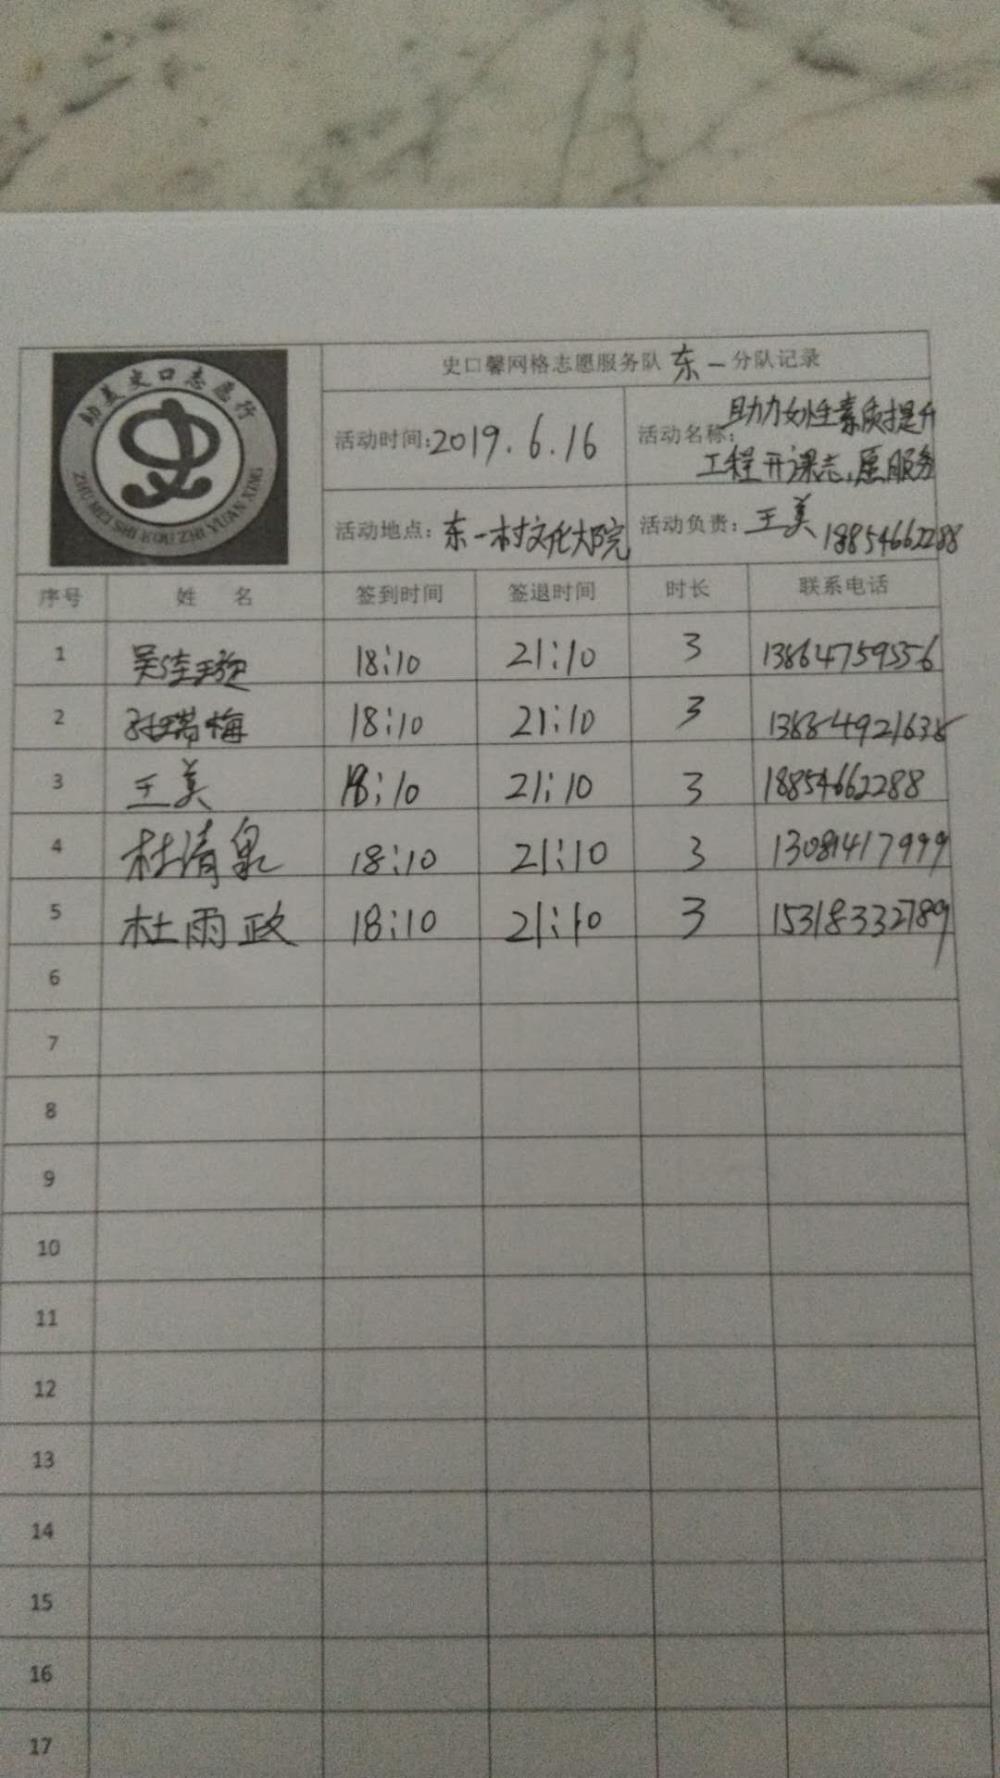 助美史口志愿行
ZHU MEI SHI KOU ZHI YUAN XING
史口馨网格志愿服务队 东一 分队记录
活动时间:2019.6.16
活动名称: 助力女性素质提升
工程开课志愿服务
活动地点: 东一村文化大院
活动负责: 王美 18854662288
序号 姓 名 签到时间 签退时间 时长 联系电话
1 吴佳璇 18:10 21:10 3 13864759556
2 孙瑞梅 18:10 21:10 3 13884921638
3 王美 18:10 21:10 3 18854662288
4 杜清泉 18:10 21:10 3 13081417999
5 杜雨政 18:10 21:10 3 15318332789
6
7
8
9
10
11
12
13
14
15
16
17